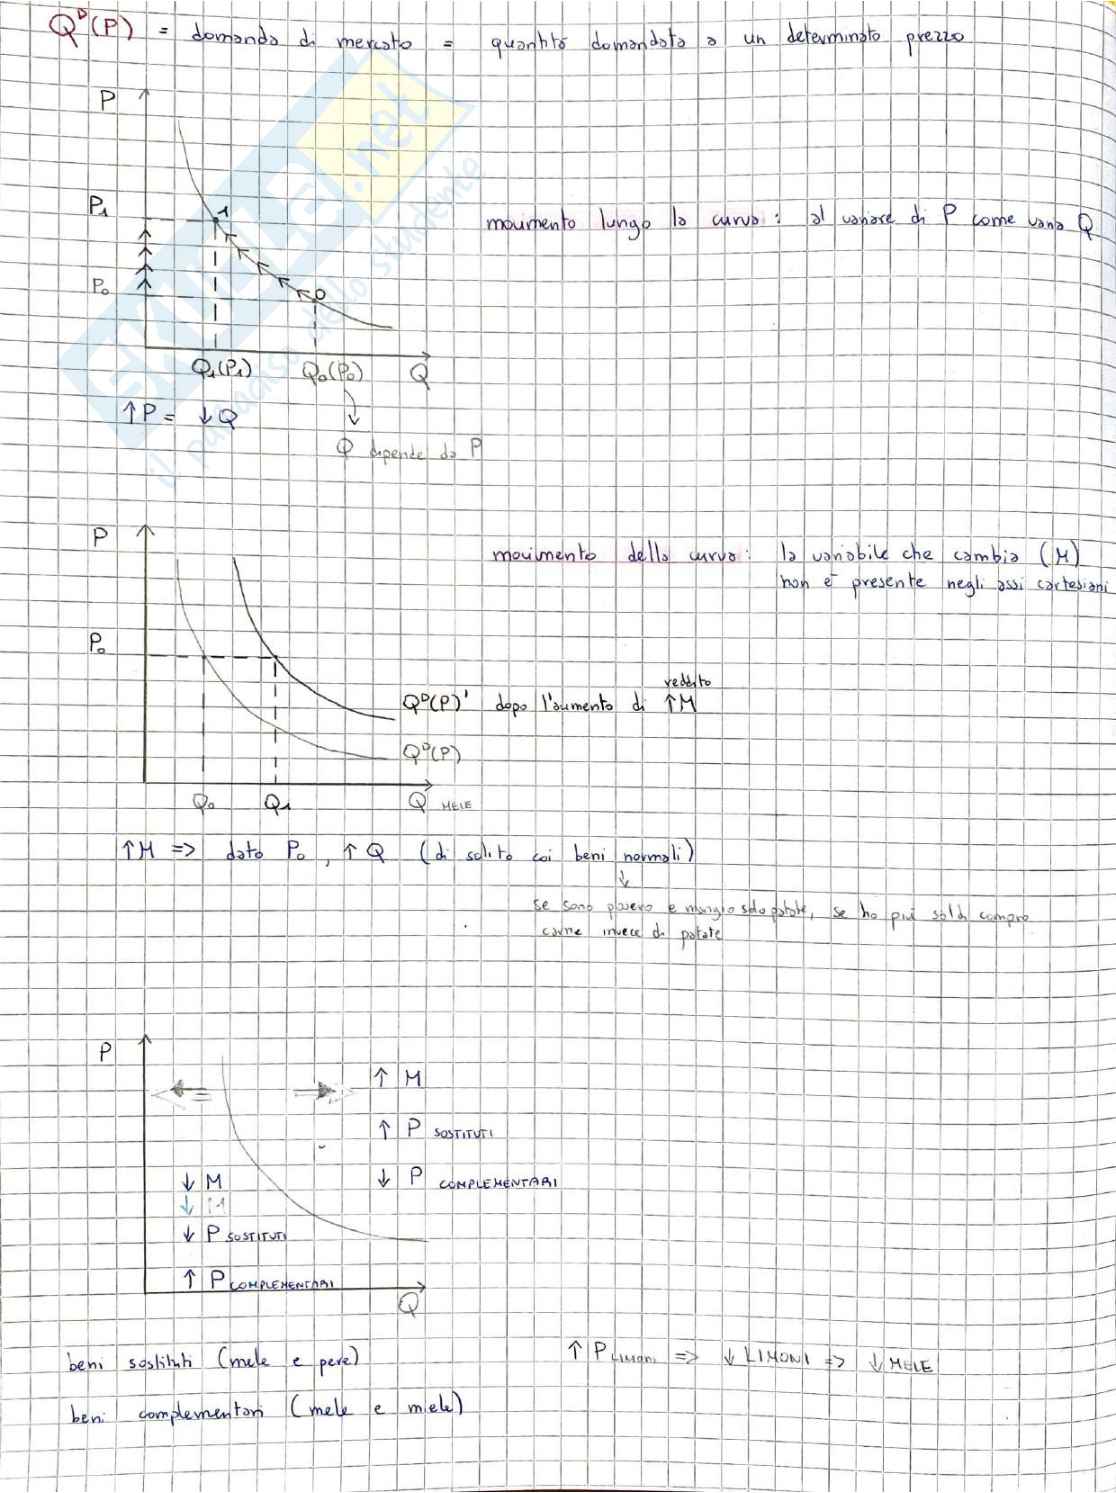 Q^D(P) = domanda di mercato = quantità domandata a un determinato prezzo
P
P₁
1
movimento lungo la curva : al variare di P come varia Q
P₀
0
Q₁(P₁) Q₀(P₀) Q
↑P = ↓Q
Q dipende da P
P
movimento della curva : la variabile che cambia (M)
non è presente negli assi cartesiani
P₀
reddito
Q^D(P)' dopo l'aumento di ↑M
Q^D(P)
Q₀ Q₁ Q MELE
↑M => dato P₀ , ↑Q (di solito coi beni normali)
se sono povero e mangio solo patate, se ho più soldi compro
carne invece di patate
P
↑ M
↑ P SOSTITUTI
↓ P COMPLEMENTARI
↓ M
↓ M
↓ P SOSTITUTI
↑ P COMPLEMENTARI
Q
beni sostituti (mele e pere)
↑ P LIMONI => ↓ LIMONI => ↓ MELE
beni complementari (mele e miele)
SKUOLA.net
il paradiso dello studente